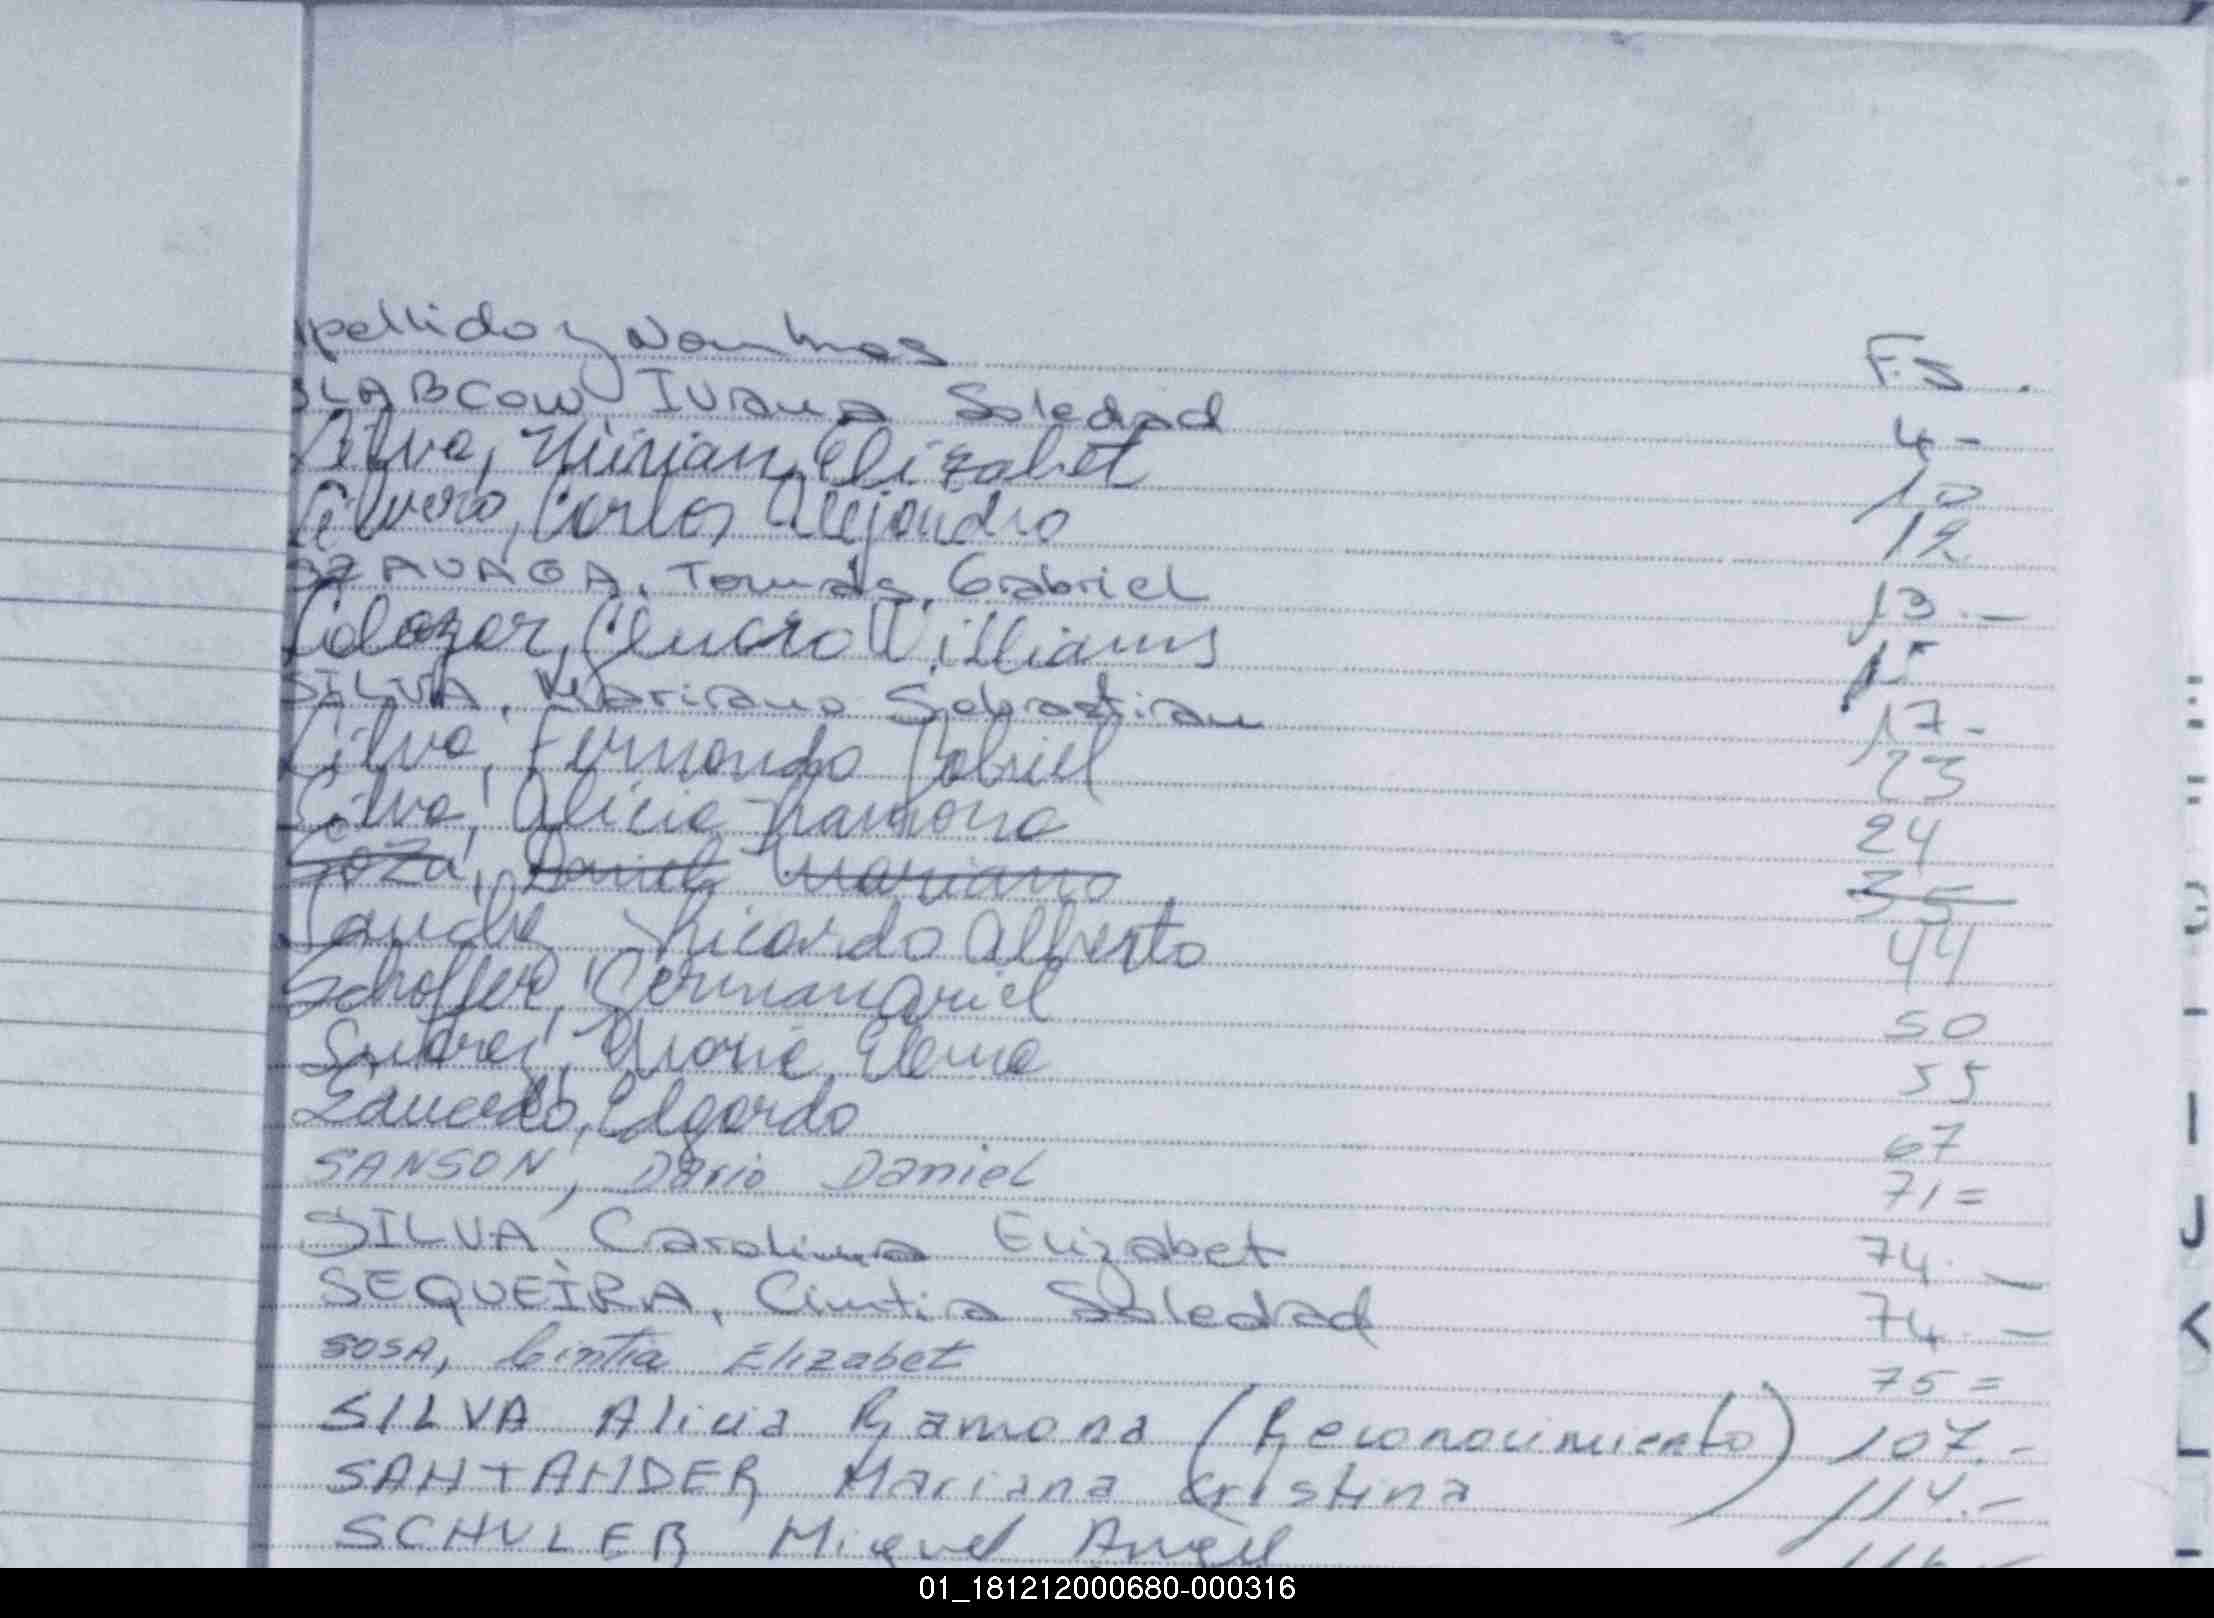 Apellido y Nombres Fs.
SLABCOW, Ivana Soledad 4-
Silva, Mirian Elizabet 10
Silvero, Carlos Alejandro 12
Tomás, Gabriel 13.-
Williams 15
SILVA, Mariano Sebastian 17-
Silva, Fernando Gabriel 23
Silva, Alicia Ramona 24
Soza, Daniel Mariano 35
Sanchez Ricardo Alberto 44
German Ariel 50
Suarez, Maria Elena 55
Edgardo 67
SANSON, Dario Daniel 71=
SILVA Carolina Elizabet 74.-
SEQUEIRA, Cintia Soledad 74.-
SOSA, Cintia Elizabet 75=
SILVA Alicia Ramona (Reconocimiento) 107.-
SANTANDER Mariana Cristina 114.-
SCHULER Miguel Angel
E
F
G
H
I
J
K
L
01_181212000680-000316